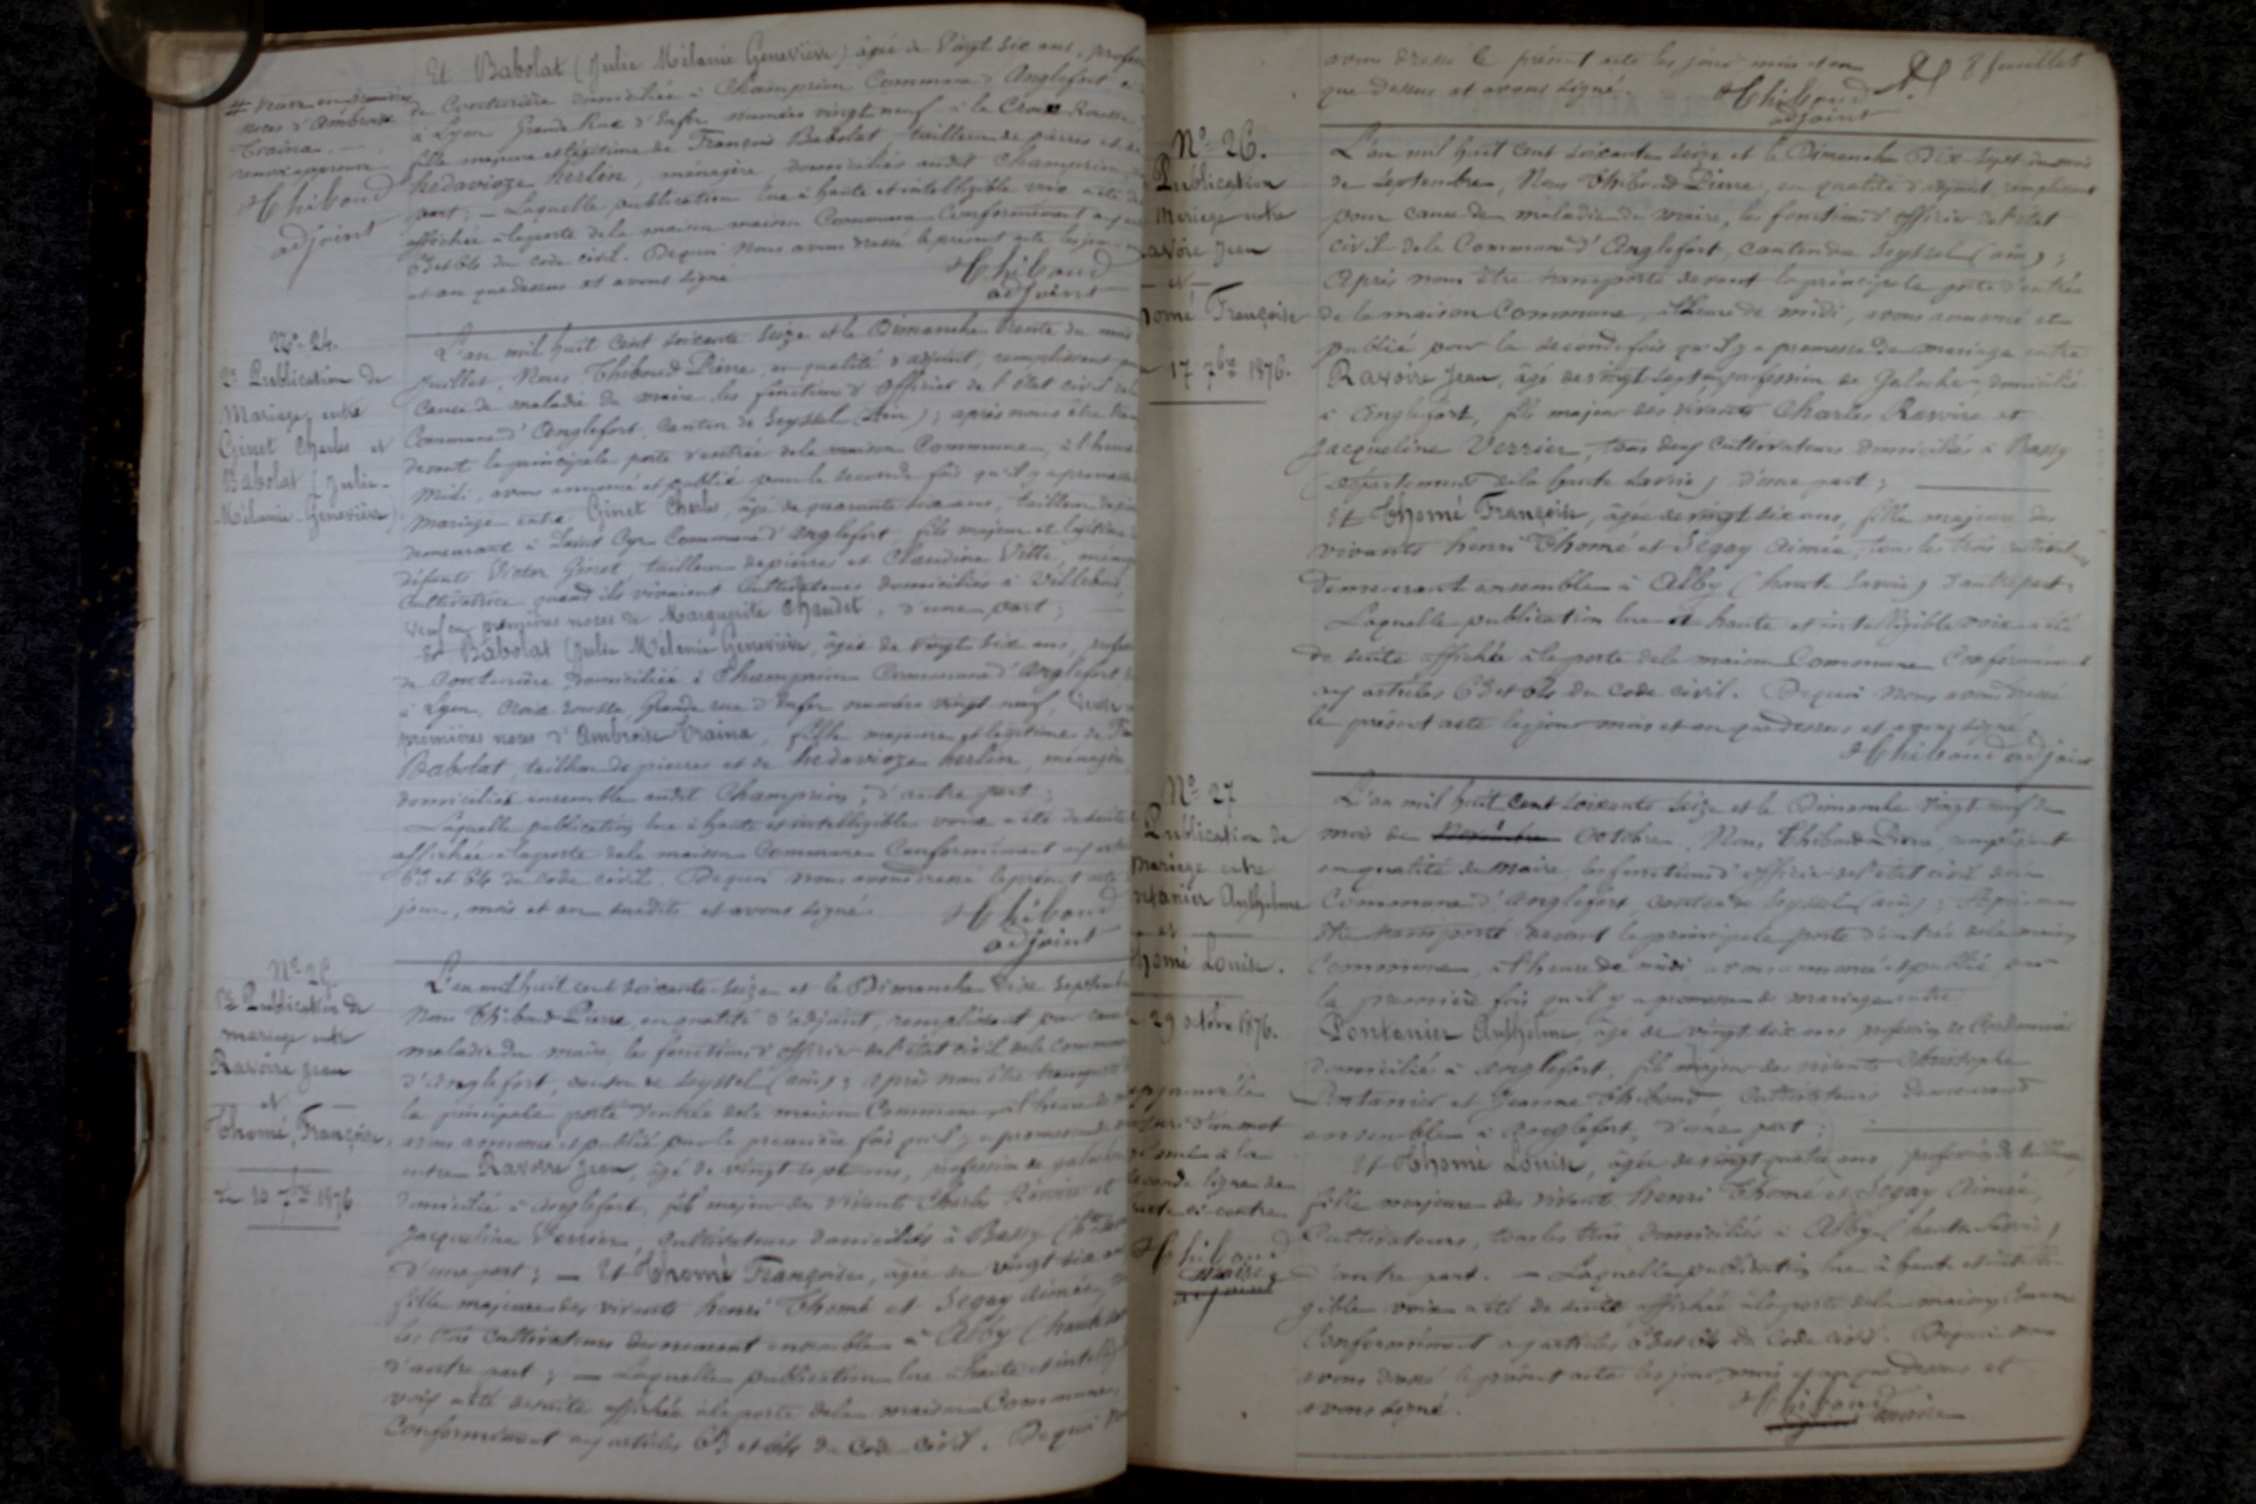 Et Babolat (Julie Mélanie Geneviève) âgée de vingt six ans, profess
de Couturière domiciliée à Champrion Commune d'Anglefort et
à Lyon Grande Rue d'Enfer numéro vingt neuf à la Croix Rousse
fille majeure et légitime de François Babolat tailleur de pierres et de
hedavioze herlin, ménagère, domiciliés audit Champrion
part; — Laquelle publication lue à haute et intelligible voix a été de
affichée à la porte de la maison Commune Conformément aux
63 et 64 du code civil. De quoi Nous avons dressé le présent acte les jour
et an que dessus et avons signé
Thiboud
adjoint
noces d'Ambroise
Traina. —
Thiboud
adjoint
No. 24.
2e Publication de
Mariage entre
Ginet Charles et
Babolat (Julie
Mélanie Geneviève)
L'an mil huit cent soixante seize et le Dimanche trente du mois
juillet, Nous Thiboud Pierre, en qualité d'adjoint, remplissant pour
cause de maladie du maire les fonctions d'officier de l'état civil de la
Commune d'Anglefort, Canton de Seyssel (Ain); après nous être
devant la principale porte d'entrée de la maison Commune, à l'heure
midi, avons annoncé et publié pour la seconde fois qu'il y a promesse
mariage entre Ginet Charles, âgé de quarante ans, tailleur de
demeurant à Saint Cyr Commune d'Anglefort, fils majeur et légitime
défunts Victor Ginet, tailleur de pierres et Claudine Vette,
Cultivatrice quand ils vivaient Cultivateurs domiciliés à Villebois,
veuf en premières noces de Marguerite Chaudet, d'une part;
Et Babolat (Julie Mélanie Geneviève, âgée de vingt six ans, profes
de Couturière, domiciliée à Champrion Commune d'Anglefort
à Lyon, Croix rousse, Grande rue d'Enfer numéro vingt neuf,
premières noces d'Ambroise Traina, fille majeure et légitime de
Babolat, tailleur de pierres et de hedavioze herlin, ménagère
domiciliés ensemble audit Champrion, d'autre part;
Laquelle publication lue à haute et intelligible voix a été de suite
affichée à la porte de la maison Commune Conformément aux
63 et 64 du Code civil. De quoi nous avons dressé le présent acte
jour, mois et an susdits et avons signé.
Thiboud
adjoint
No. 25
1re Publication de
mariage entre
Ravoire Jean
et
Thomé Françoise
Le 10 7bre 1876
L'an mil huit cent soixante seize et le Dimanche dix Septembre
Nous Thiboud Pierre, en qualité d'adjoint, remplissant pour cause
maladie du maire, les fonctions d'officier de l'état civil de la commune
d'Anglefort, canton de Seyssel (ain); après nous être transporté
la principale porte d'entrée de la maison Commune, à l'heure de
avons annoncé et publié pour la première fois qu'il y a promesse de
entre Ravoire Jean, âgé de vingt sept ans, profession de galocher
domicilié à Anglefort, fils majeur des vivants Charles Ravoire et
Jacqueline Verrier, Cultivateurs domiciliés à Bassy (
d'une part; — Et Thomé Françoise, âgée de vingt six ans
fille majeure des vivants henri Thomé et Segay Aimée,
les trois cultivateurs demeurant ensemble à Alby (haute
d'autre part; — Laquelle publication lue à haute et intelligi
voix a été de suite affichée à la porte de la maison Commune,
Conformément aux articles 63 et 64 du Code civil. De quoi
avons dressé le présent acte les jour mois et an
que dessus et avons signé.
Thiboud
adjoint
8 Feuillet
No. 26.
Publication
Mariage entre
avoire Jean
et
homé Françoise
17 7bre 1876.
L'an mil huit cent soixante seize et le Dimanche Dix-sept du mois
de Septembre, Nous Thiboud Pierre, en qualité d'adjoint remplissant
pour cause de maladie du maire, les fonctions d'officier de l'état
civil de la Commune d'Anglefort, canton de Seyssel (ain);
Après nous être transporté devant la principale porte d'entrée
de la maison Commune, à l'heure de midi, avons annoncé et
publié pour la seconde fois qu'il y a promesse de mariage entre
Ravoire Jean, âgé de vingt sept ans, profession de Galocher, domicilié
à Anglefort, fils majeur des vivants Charles Ravoire et
Jacqueline Verrier, tous deux Cultivateurs domiciliés à Bassy
(département de la haute Savoie) d'une part;
Et Thomé Françoise, âgée de vingt six ans, fille majeure des
vivants henri Thomé et Segay Aimée, tous les trois cultivateurs
demeurant ensemble à Alby (haute Savoie) d'autre part.
Laquelle publication lue à haute et intelligible voix a été
de suite affichée à la porte de la maison Commune Conformément
aux articles 63 et 64 du Code civil. De quoi Nous avons dressé
le présent acte les jour mois et an que dessus et avons signé
Thiboud adjoint
No. 27
Publication de
Mariage entre
ntanier Anthelme
et
homé Louise.
29 octobre 1876.
d'un mot
à la
seconde ligne de
l'acte ci-contre
Thiboud
maire
adjoint
L'an mil huit cent soixante seize et le Dimanche vingt neuf du
mois de Novembre Octobre, Nous Thiboud Pierre, remplissant
en qualité de Maire, les fonctions d'officier de l'état civil de la
Commune d'Anglefort, canton de Seyssel (ain); Après nous
être transporté devant la principale porte d'entrée de la maison
Commune, à l'heure de midi avons annoncé et publié pour
la première fois qu'il y a promesse de mariage entre
Pontanier Anthelme, âgé de vingt six ans profession de Cordonnier
domicilié à Anglefort, fils majeur des vivants Christophe
Pontanier et Jeanne Thiboud, Cultivateurs demeurant
ensemble à Anglefort, d'une part;
Et Thomé Louise, âgée de vingt quatre ans, profession de
fille majeure des vivants henri Thomé et Segay Aimée,
Cultivateurs, tous les trois domiciliés à Alby (haute Savoie)
d'autre part. — Laquelle publication lue à haute et intelli
gible voix a été de suite affichée à la porte de la maison Commune
Conformément aux articles 63 et 64 du Code civil. De quoi nous
avons dressé le présent acte les jour, mois et an que dessus et
avons signé.
Thiboud maire